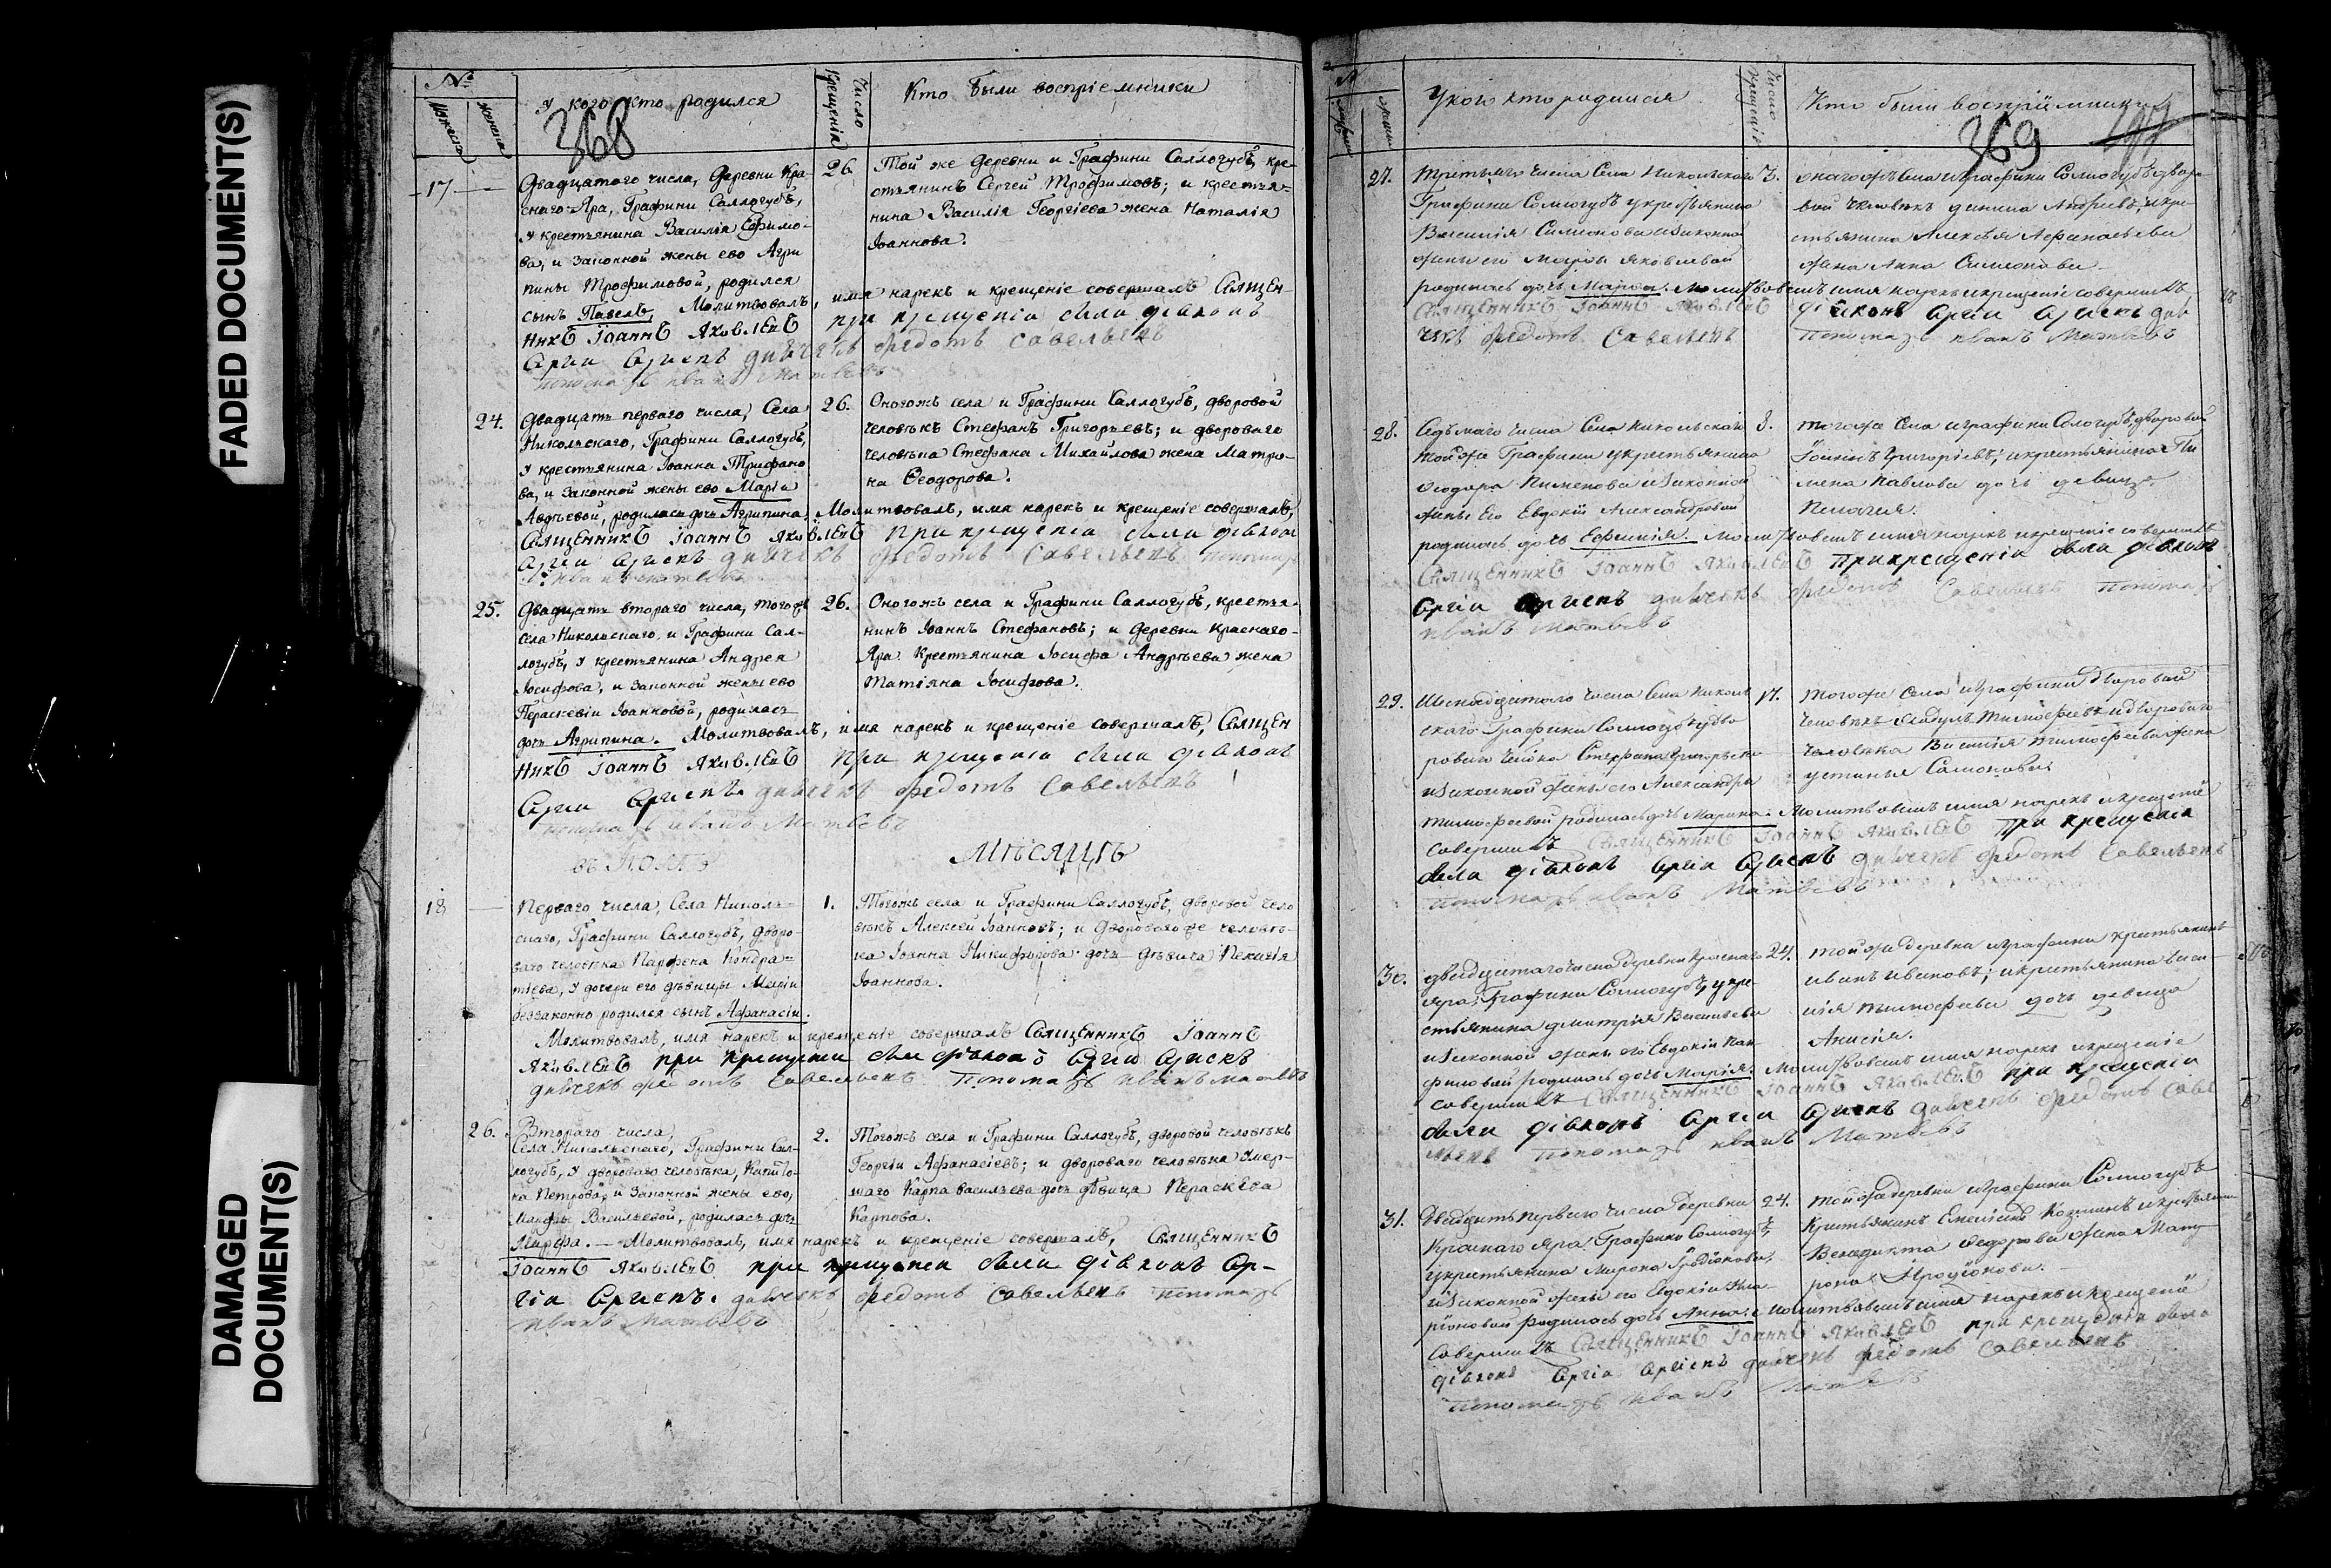 FADED DOCUMENT(S)
DAMAGED
DOCUMENT(S)
№
Мужеска
Женска
У кого кто родился
Число
Крещенія
Кто были воспріемники
368
17
Двадцатаго числа, Деревни Кра-
снаго-Яра, Графини Саллогубъ,
у крестьянина Василія Ефимо-
ва, и законной жены ево Агри
пины Трофимовой, родился
сынъ Павелъ, Молитвовалъ, имя нарекъ и крещеніе совершалъ Священ
никъ Іоаннъ Яковлевъ при крещеніи были діаконъ
дьячекъ Федотъ Савельевъ
пономарь Иванъ Матвеевъ
26
Той же Деревни и Графини Саллогубъ, кре-
стьянинъ Сергей Трофимовъ; и крестья-
нина Василія Георгіева жена Наталія
Іоаннова.
24.
Двадцать перваго числа, Села
Никольскаго, Графини Саллогубъ,
у крестьянина Іоанна Трифано
ва, и законной жены ево Маріи
Авдѣевой, родилась дочь Агрипина. Молитвовалъ, имя нарекъ и крещеніе совершалъ,
Священникъ Іоаннъ Яковлевъ При крещеніи были діаконъ
дьячекъ Федотъ Савельевъ пономарь
Иванъ Матвеевъ
26.
Оногожъ села и Графини Саллогубъ, дворовой
человѣкъ Стефанъ Григорьевъ; и двороваго
человѣка Стефана Михайлова жена Матро-
на Ѳеодорова.
25.
Двадцать втораго числа, тогожъ
села Никольскаго, и Графини Сал-
логубъ, у крестьянина Андрея
Іосифова, и законной жены ево
Пераскевіи Іоанновой, родилась
дочь Агрипина. Молитвовалъ, имя нарекъ и крещеніе совершалъ, Священ
никъ Іоаннъ Яковлевъ При крещеніи были діаконъ
дьячекъ Федотъ Савельевъ
пономарь Иванъ Матвеевъ
26.
Оногожъ села и Графини Саллогубъ, крестья-
нинъ Іоаннъ Стефановъ; и Деревни Краснаго-
Яра Крестьянина Іосифа Андрѣева жена
Татіяна Іосифова.
Мѣсяцъ
18
Перваго числа, Села Николь-
скаго, Графини Саллогубъ, дворо-
ваго человѣка Парфена Кондра-
тіева, у дочери его дѣвицы Маріи
беззаконно родился сынъ Афанасій.
Молитвовалъ, имя нарекъ и крещеніе совершалъ Священникъ Іоаннъ
Яковлевъ при крещеніи были діаконъ
дьячекъ Федотъ Савельевъ Пономарь Иванъ Матвеевъ
1.
Тогожъ села и Графини Саллогубъ, дворовой чело
вѣкъ Алексей Іоанновъ; и двороваго же человѣ-
ка Іоанна Никифорова дочь дѣвица Пелагія
Іоаннова.
26.
Втораго числа,
Села Никольскаго, Графини Сал-
логубъ, у двороваго человѣка, Капито-
на Петрова, и законной жены ево,
Марфы Васильевой, родилась дочь
Марфа. — Молитвовалъ, имя нарекъ и крещеніе совершалъ, Священникъ
Іоаннъ Яковлевъ при крещеніи были діаконъ
дьячекъ Федотъ Савельевъ пономарь
Иванъ Матвеевъ
2.
Тогожъ села и Графини Саллогубъ, дворовой человѣкъ
Георгіи Афанасіевъ; и двороваго человѣка умер-
шаго Карпа Васильева дочь дѣвица Пераскева
Карпова.
У кого кто родился
Число
крещенія
Кто были воспріимники
369
27.
Третьяго числа Села Никольскаго
Графини Соллогубъ у крестьянина
Василія Симионова и законной
жены его Марѳы Яковлевой
родилась дочь Марѳа. Молитвовалъ имя нарекъ и крещеніе совершилъ
Священникъ Іоаннъ Яковлевъ діаконъ
Федотъ Савельевъ Пономарь Иванъ Матвеевъ
3.
онагожъ Села и Графини Соллогубъ дворо-
вой человѣкъ Данила Андреевъ, и кре-
стьянина Алексѣя Афанасьева
жена Анна Симионова
28.
Седьмаго числа Села Никольскаго
тойже Графини у крестьянина
Ѳеодора Пименова и законной
жены Его Евдокіи Александровой
родилась дочь Ефимія. Молитвовалъ имя нарекъ и крещеніе совершилъ
Священникъ Іоаннъ Яковлевъ При крещеніи были діаконъ
дьячекъ Федотъ Савельевъ Пономарь
Иванъ Матвеевъ
8.
тогоже Села и графини Сологубъ, дворовой
Іоаннъ Григоріевъ; и крестьянина Пи
мена Павлова дочь девица
Пелагия.
29.
Шеснадцатаго числа Села Николь
скаго Графини Соллогубъ у дво
роваго человѣка Стефана Григорьева
и законной жены его Александры
тимофеевой родилась дочь Марина. Молитвовалъ имя нарекъ и крещеніе
совершилъ Священникъ Іоаннъ Яковлевъ При крещеніи
были діаконъ дьячекъ Федотъ Савельевъ
пономарь Иванъ Матвеевъ
17.
тогоже Села и Графини Дворовой
человѣкъ Тимофеевъ и двороваго
человѣка Василія тимофеева жена
устинья Самсонова.
30.
двадцатаго числа Деревни Краснаго
яра, Графини Соллогубъ, у кре-
стьянина дмитрія Васильева
и законной жены его Евдокіи Пан
филовой родилась дочь Марія. Молитвовалъ имя нарекъ и крещеніе
совершилъ Священникъ Іоаннъ Яковлевъ при крещеніи
были діаконъ дьячекъ Федотъ Савел
ьевъ пономарь Иванъ Матвеевъ
24.
тойже деревни и графини крестьянинъ
иванъ ивановъ; и крестьянина Васи-
лія тимофеева дочь девица
Анисия.
31.
Двадцать перваго числа Деревни
Краснаго яра Графини Соллогубъ,
у крестьянина Мирона Родіонова,
и законной жены его Евдокіи Ила-
ріоновой родилась дочь Анна. Молитвовалъ имя нарекъ и крещеніе
совершилъ Священникъ Іоаннъ Яковлевъ при крещеніи были
діаконъ дьячекъ Федотъ Савельевъ
пономарь Иванъ
24.
тойже деревни и графини Соллогубъ
Крестьянинъ и крестьянина
Венедикта Ѳедорова жена Мат
рона